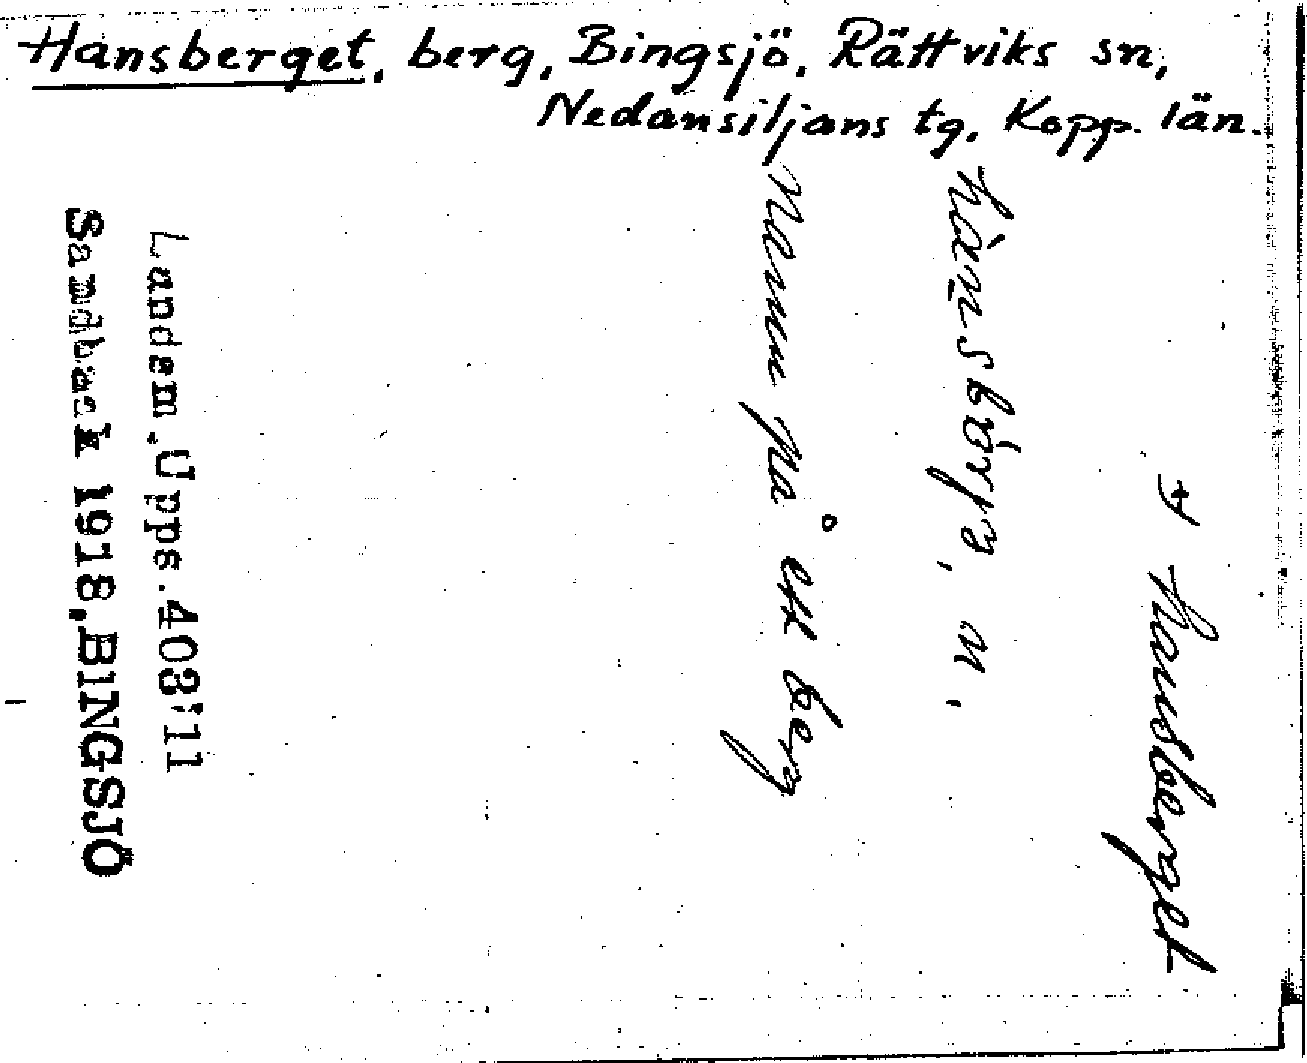 Hansberget, berg, Bingsjö, Rättviks sn,
Nedansiljans tg. Kopp. län.
+ Hansberget
hànsbárje, n,
Namn på ett berg
Landsm. Upps. 403:11
Sandbäck 1918, BINGSJÖ